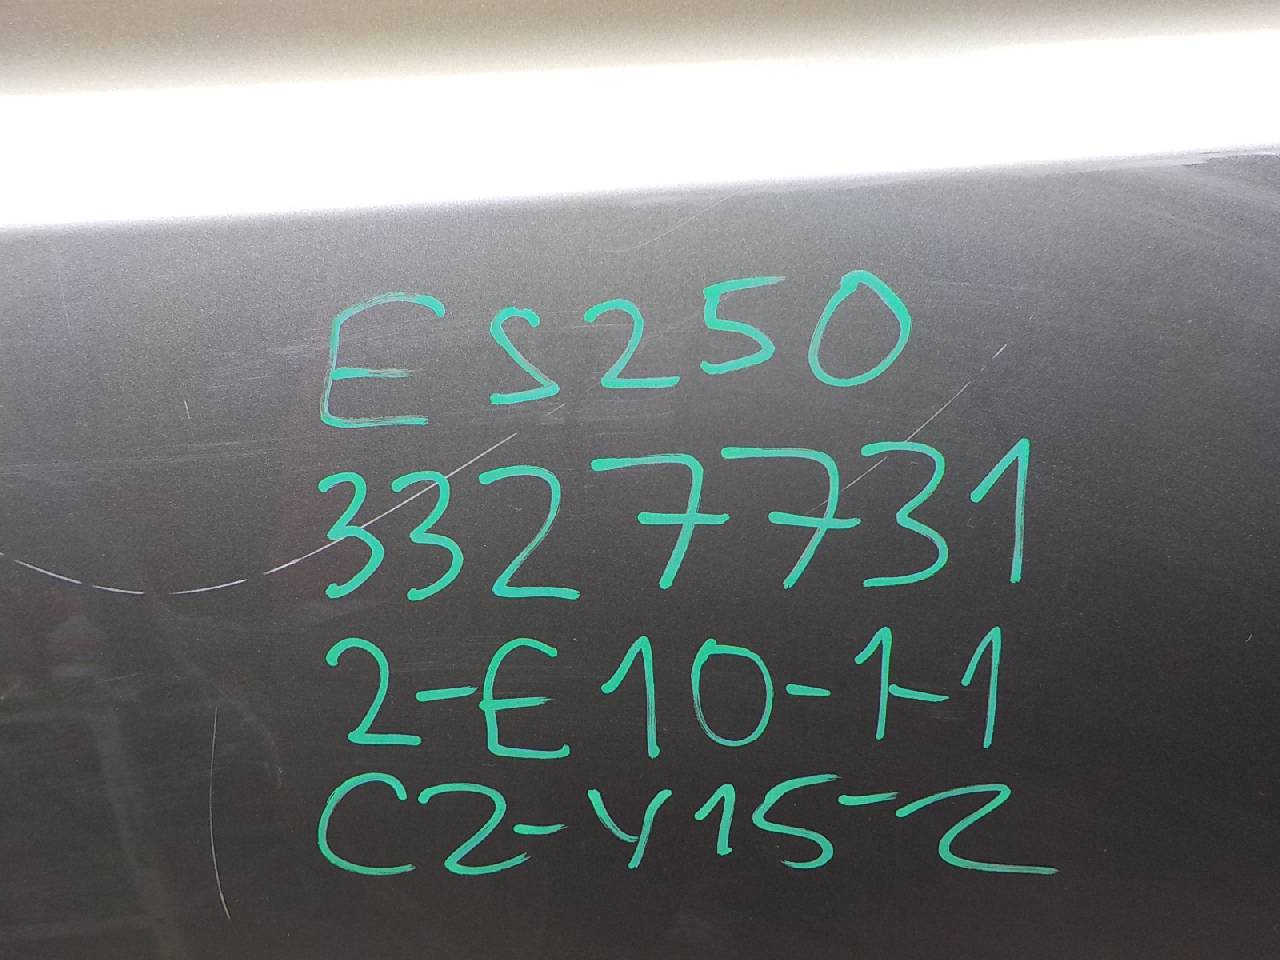 ES250
3327731
2-E10-1-1
C2-Y15-2